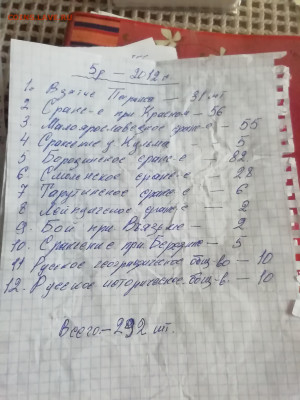 5р – 2012 г.
1. Взятие Парижа — 31 шт
2 Сраж-е при Красном – 56
3 Малоярославецкое сраж-е – 56
4 Сражение у Кульма – 5
5 Бородинское сраж-е – 82
6 Смоленское сраж-е – 28
7 Тарутинское сраж-е – 6
8 Лейпцигское сраж-е – 2
9. Бой при Вязьме – 2
10. Сражение при Березине – 5
11. Русское географическое общ-во – 10
12. Русское историческое общ-в. – 10
Всего – 292 шт.